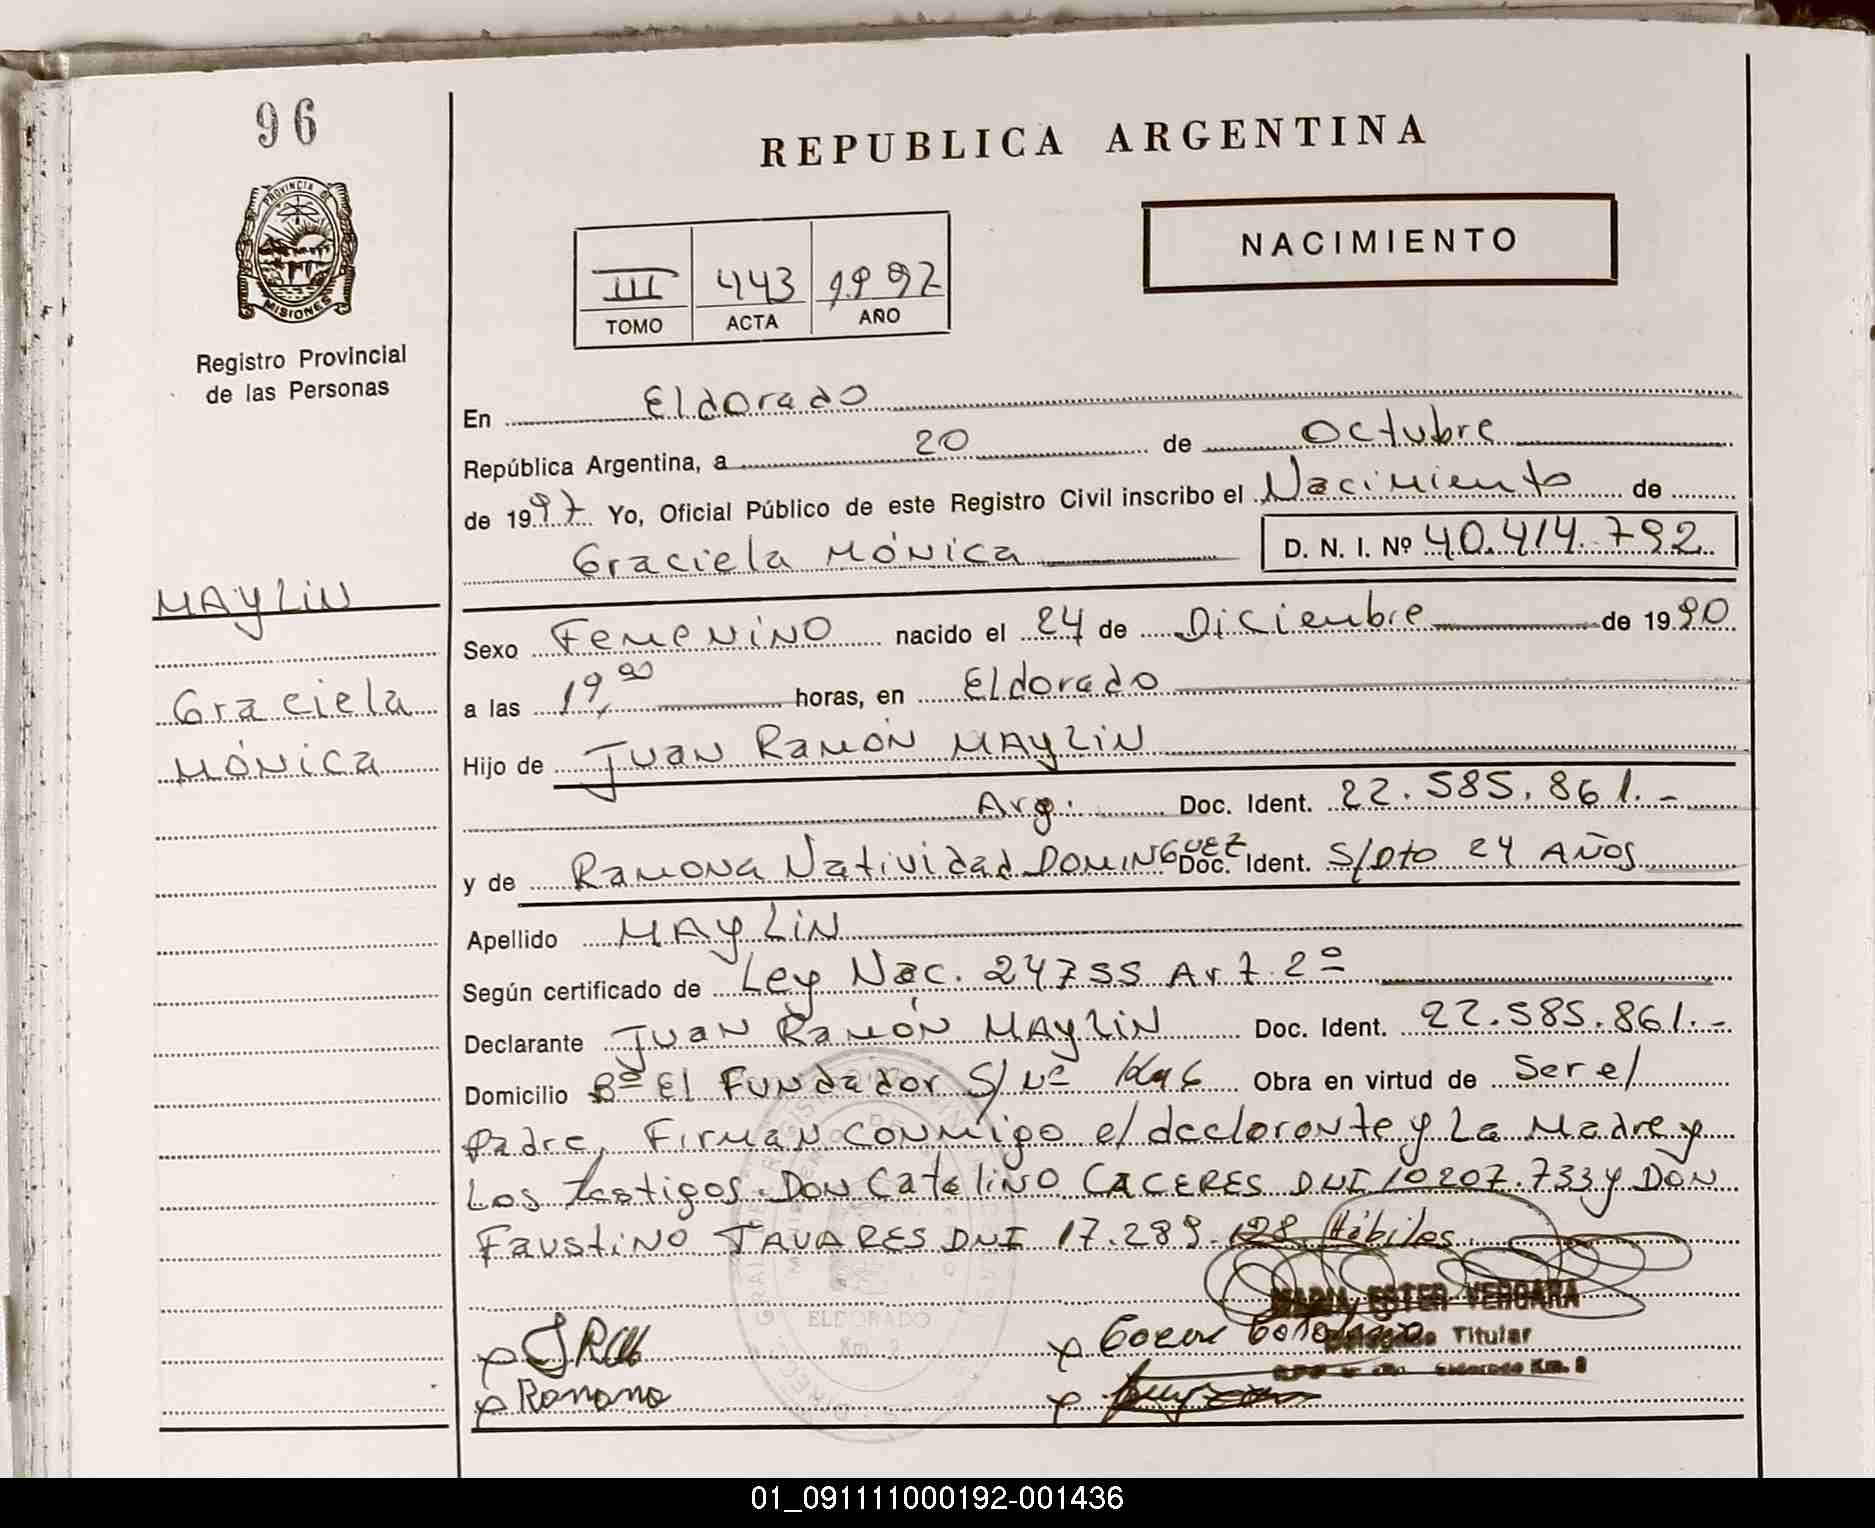 96
PROVINCIA DE
MISIONES
Registro Provincial
de las Personas
MAYLIN
Graciela
Mónica
REPUBLICA ARGENTINA
NACIMIENTO
III 443 1992
TOMO ACTA AÑO
En Eldorado
República Argentina, a 20 de Octubre
de 1997 Yo, Oficial Público de este Registro Civil inscribo el Nacimiento de
Graciela Mónica D. N. I. Nº 40.414.792
Sexo Femenino nacido el 24 de Diciembre de 1990
a las 19,00 horas, en Eldorado
Hijo de Juan Ramón MAYLIN
Arg. Doc. Ident. 22.585.861.-
y de Ramona Natividad DOMINGUEZ Doc. Ident. S/Dto 24 AÑOS
Apellido MAYLIN
Según certificado de Ley Nac. 24755 Art. 2º
Declarante Juan Ramón MAYLIN Doc. Ident. 22.585.861.-
Domicilio Bº El Fundador S/Nº Obra en virtud de Ser el
padre, Firman conmigo el declarante y La Madre y
Los testigos Don Catalino CACERES DNI 10207.733 y DON
Faustino TAVARES DNI 17.289.128 Hábiles
MARIA ESTER VERGARA
Titular
Eldorado Km. 2
ELDORADO
Km. 2
Ramona
01_091111000192-001436